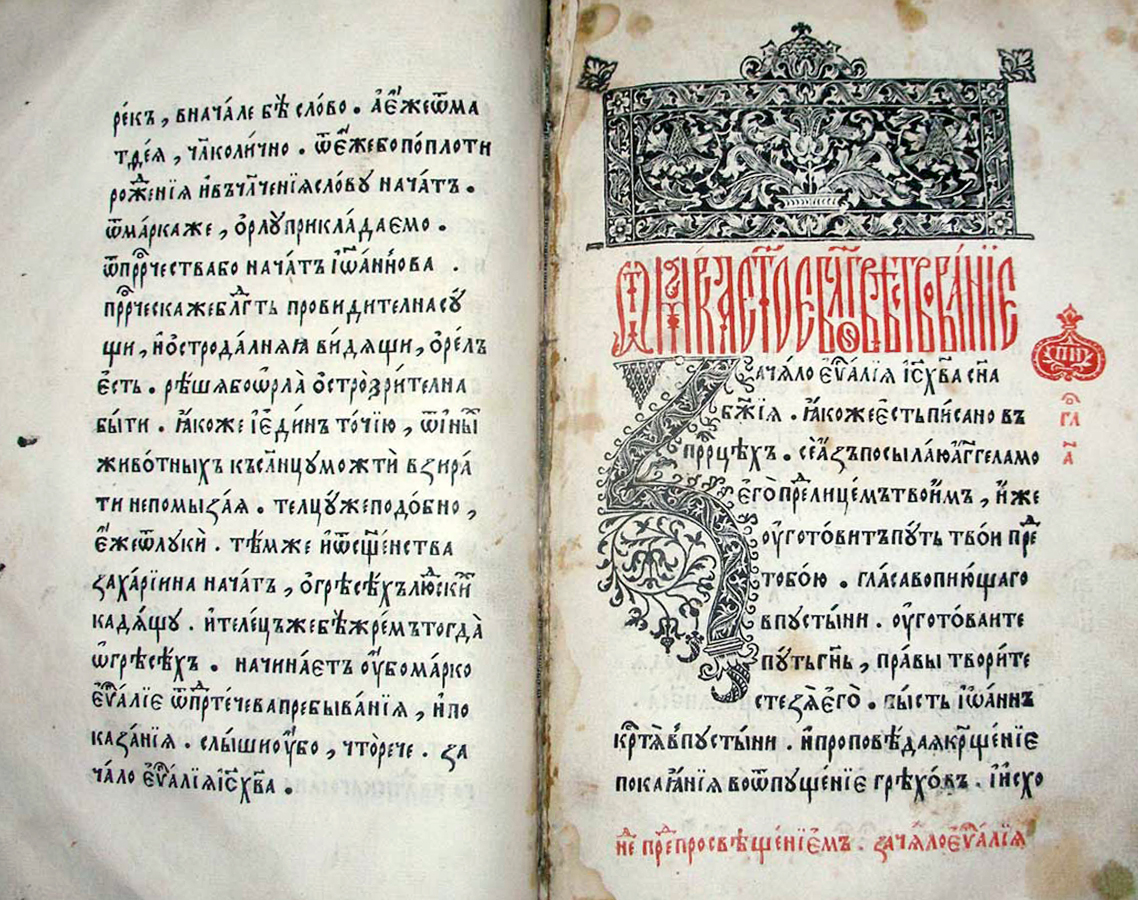 ре́къ, внача́ле бѣ̀ сло́во. а҆е҆́же ѿ ма
тдея, чл҃коли́чно. ѿ е҆́же бо по́ плоти
рожⷣе́нїѧ и҆ въчл҃че́нїѧ сло́ву нача́тъ.
ѿ ма́рка же, ѻ҆рлу̀ прикла́даємо.
ѿ прⷪ҇рчества бо нача́тъ і҆ѡа́ннова.
прⷪ҇рческа же блгⷣть провидителна су́
щи, и҆ ѻ҆строда́лнаꙗ ви́дѧщи, ѻ҆ре́лъ
є҆́сть. рѣ́шѧ бо ѻ҆рла̀ ѻ҆строзри́телна
бы́ти. ꙗ҆́коже і҆ є҆ди́нъ то́чїю, ѿ и҆ны́хъ
живо́тныхъ къ сл҃нцу мо́жтѝ взира́
ти не помыза́ѧ. телцу́ же подо́бно,
є҆́же ѿ лукѝ. тѣ́мже и҆ ѿ сщ҃е́нства
заха́рїина нача́тъ, ѻ҆ грѣсѣ́хъ людⷭ҇ки́хъ
кадѧ́щу. и҆ теле́цъ же бѣ̀ жре́мъ тогда̀
ѡ҆ грѣсѣ́хъ. начина́єтъ ѹ҆́бо ма́рко
є҆ѵⷢ҇а́лїє ѿ прⷣте́чева пребыва́нїѧ, и҆ по
каза́нїѧ. слы́ши ѹ҆́бо, что̀ рече. за
ча́ло є҆ѵⷢ҇а́лїѧ і҆с҃ хв҃а.
ѿ ма́рка ст҃ое бл҃говѣствова́нїе
Зача́ло є҆ѵⷢ҇а́лїѧ і҆с҃ хв҃а сн҃а
бж҃їѧ. ꙗ҆́коже є҆́сть пи́сано въ
прⷪ҇рцѣхъ. се а҆́зъ посыла́ю а҆́гг҃ела мо
его̀ преⷣ лице́мъ твои́мъ, и҆́же
ѹ҆гото́витъ пу́ть тво́и преⷣ
тобо́ю. гла́са вопию́щаго
в пусты́ни. ѹ҆гото́ваите
пу́ть гн҃ь, пра́вы твори́те
стезѧ̀ є҆го̀. бы́сть і҆ѡа́ннъ
крⷭ҇тѧ̀ в пусты́ни. и҆ проповѣ́даѧ крⷭ҇ще́нїе
покаꙗ́нїѧ во ѿпуще́нїе грѣхо́въ. і҆ и҆схо
пи҃
гл҃
а҃
неⷣ преⷣ просвѣще́нїемъ. зача́ло є҆ѵⷢ҇а́лїѧ